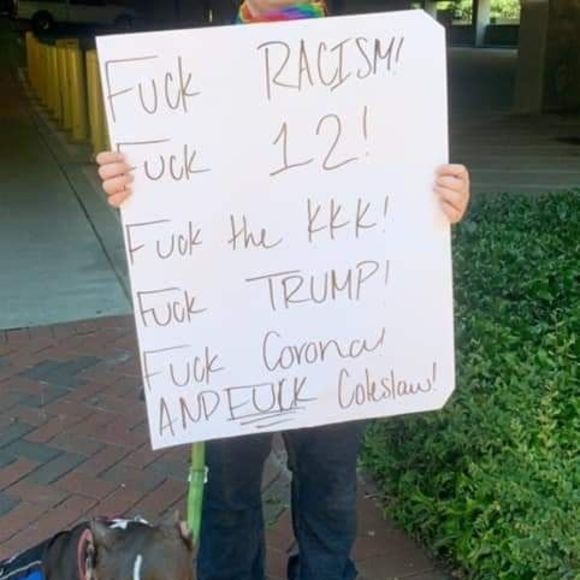 Fuck RACISM!
Fuck 12!
Fuck the KKK!
Fuck TRUMP!
Fuck Corona!
AND FUCK Coleslaw!